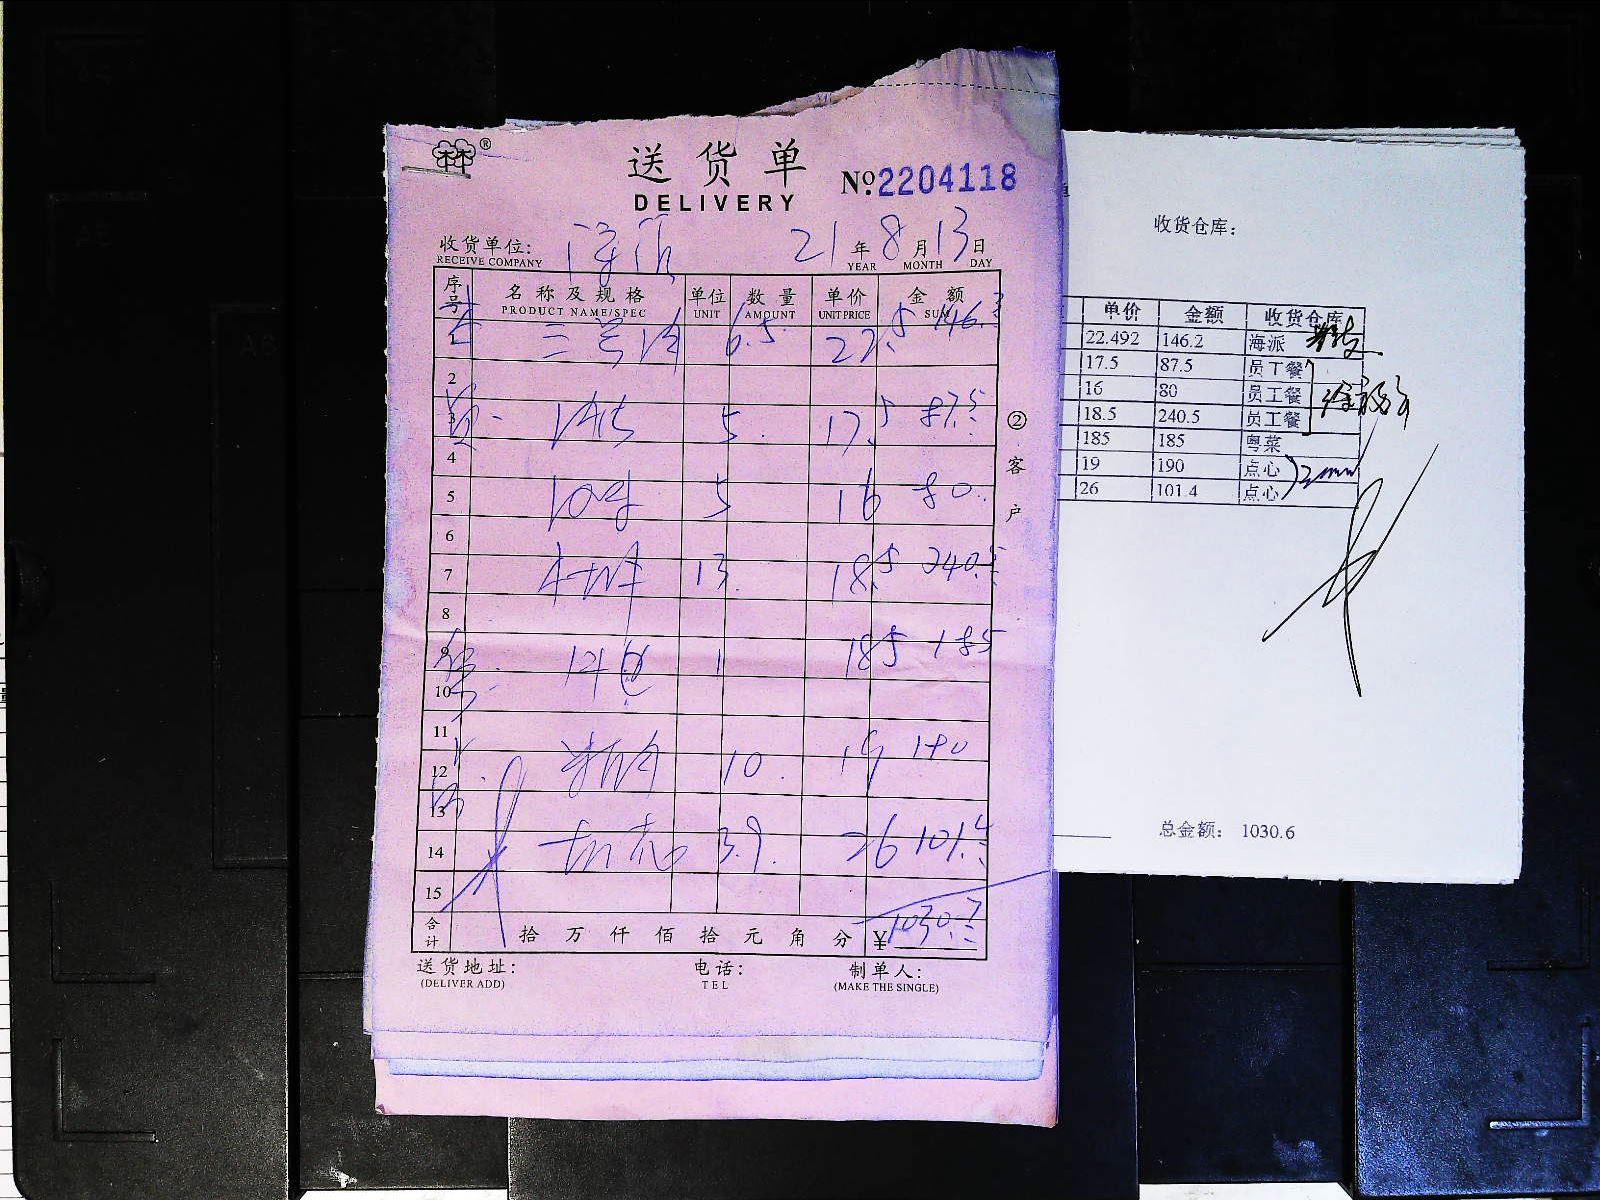 ®
送货单
DELIVERY
No.2204118
收货单位: 海派 21年8月13日
RECEIVE COMPANY YEAR MONTH DAY
序号 名称及规格 单位 数量 单价 金额
PRODUCT NAME/SPEC UNIT AMOUNT UNIT PRICE SUM
三号肉 6.5 22.5 146.3
2
3 5 17.5 87.5
4
5 5 16 80
6
7 13 18.5 240.5
8
9 1 185 185
10
11
12 10 19 190
13
14 3.9 26 101.4
15
合计 拾万仟佰拾元角分 ¥1030.7
送货地址: 电话: 制单人:
(DELIVER ADD) TEL (MAKE THE SINGLE)
②客户
收货仓库:
单价 金额 收货仓库
22.492 146.2 海派
17.5 87.5 员工餐
16 80 员工餐
18.5 240.5 员工餐
185 185 粤菜
19 190 点心
26 101.4 点心
总金额: 1030.6